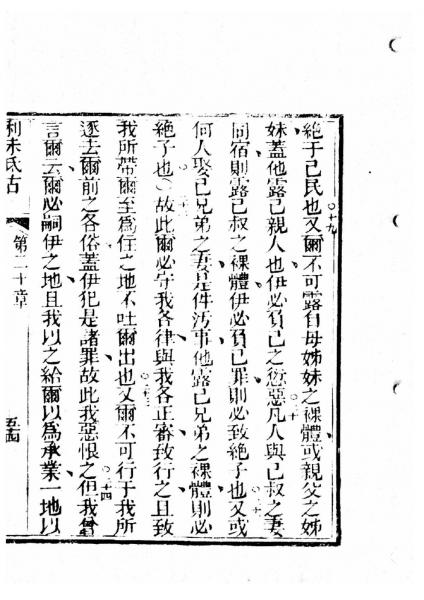 絶于己民也又爾不可露自母姊妹之裸體或親父之姊
十九
妹蓋他露己親人也伊必負己之愆惡凡人與己叔之妻
二十
同宿則露己叔之裸體伊必負己罪則必致絶子也又或
二十一
何人娶己兄弟之妻是件污事他露己兄弟之裸體則必
絶子也故此爾必守我各律與我各正審致行之且致
二十二
我所帶爾至爲住之地不吐爾出也又爾不可行于我所
二十三
逐去爾前之各俗蓋伊犯是諸罪故此我惡恨之但我曾
二十四
言爾云爾必嗣伊之地且我以之給爾以爲承業一地以
利未氏古
第二十章
五十四